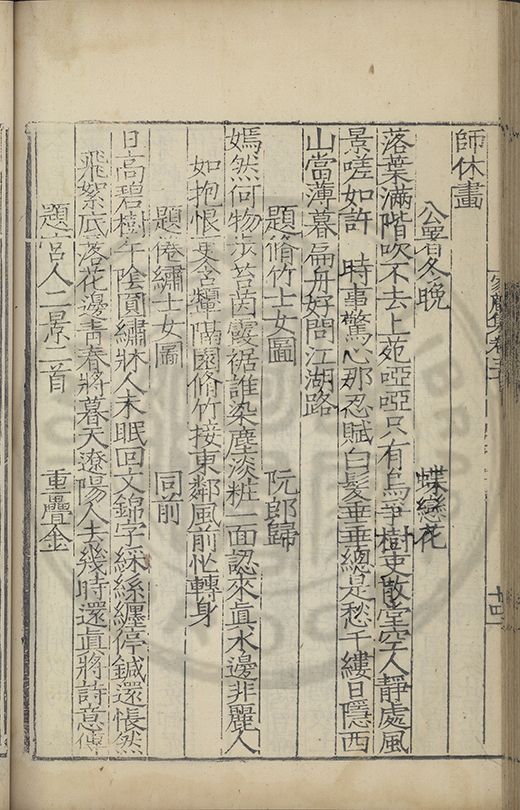 師休畫
公署冬晚 蝶戀花
落葉滿階吹不去上苑啞啞只有烏爭樹吏散堂空人靜處風
景嗟如許 時事驚心那忍賦白髮垂垂總是愁千縷日隱西
山當薄暮扁舟好問江湖路
題脩竹士女圖 阮郎歸
嫣然何物步苔茵霞裾誰染塵淡粧一面認來眞水邊非麗人
如抱恨更含顰隔園脩竹接東鄰風前忙轉身
題倦繡士女圖 同前
日高碧樹午陰圓繡牀人未眠回文錦字綵絲纏停鍼還悵然
飛絮底落花邊靑春將暮天遼陽人去幾時還眞將詩意傳
題宮人二景二首 重疊金